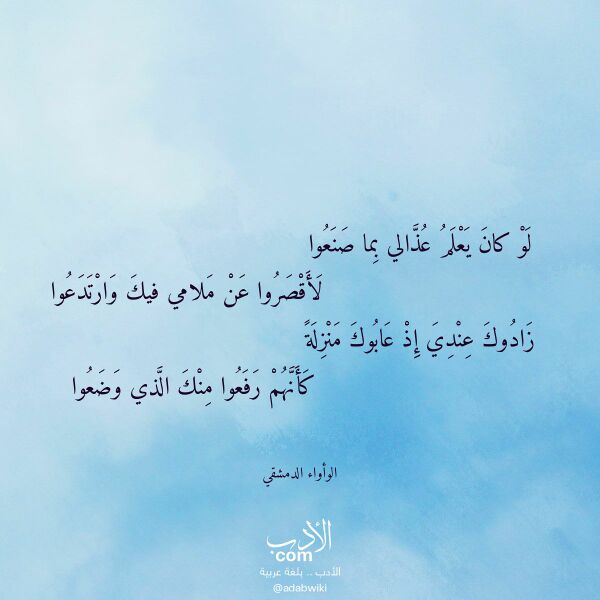 لَوْ كانَ يَعْلَمُ عُذَّالي بِما صَنَعُوا
لَأَقْصَرُوا عَنْ مَلامي فيكَ وَارْتَدَعُوا
زَادُوكَ عِنْدِيَ إِذْ عَابُوكَ مَنْزِلَةً
كَأَنَّهُمْ رَفَعُوا مِنْكَ الَّذي وَضَعُوا
الوأواء الدمشقي
الأدب
com
الأدب .. بلغة عربية
@adabwiki